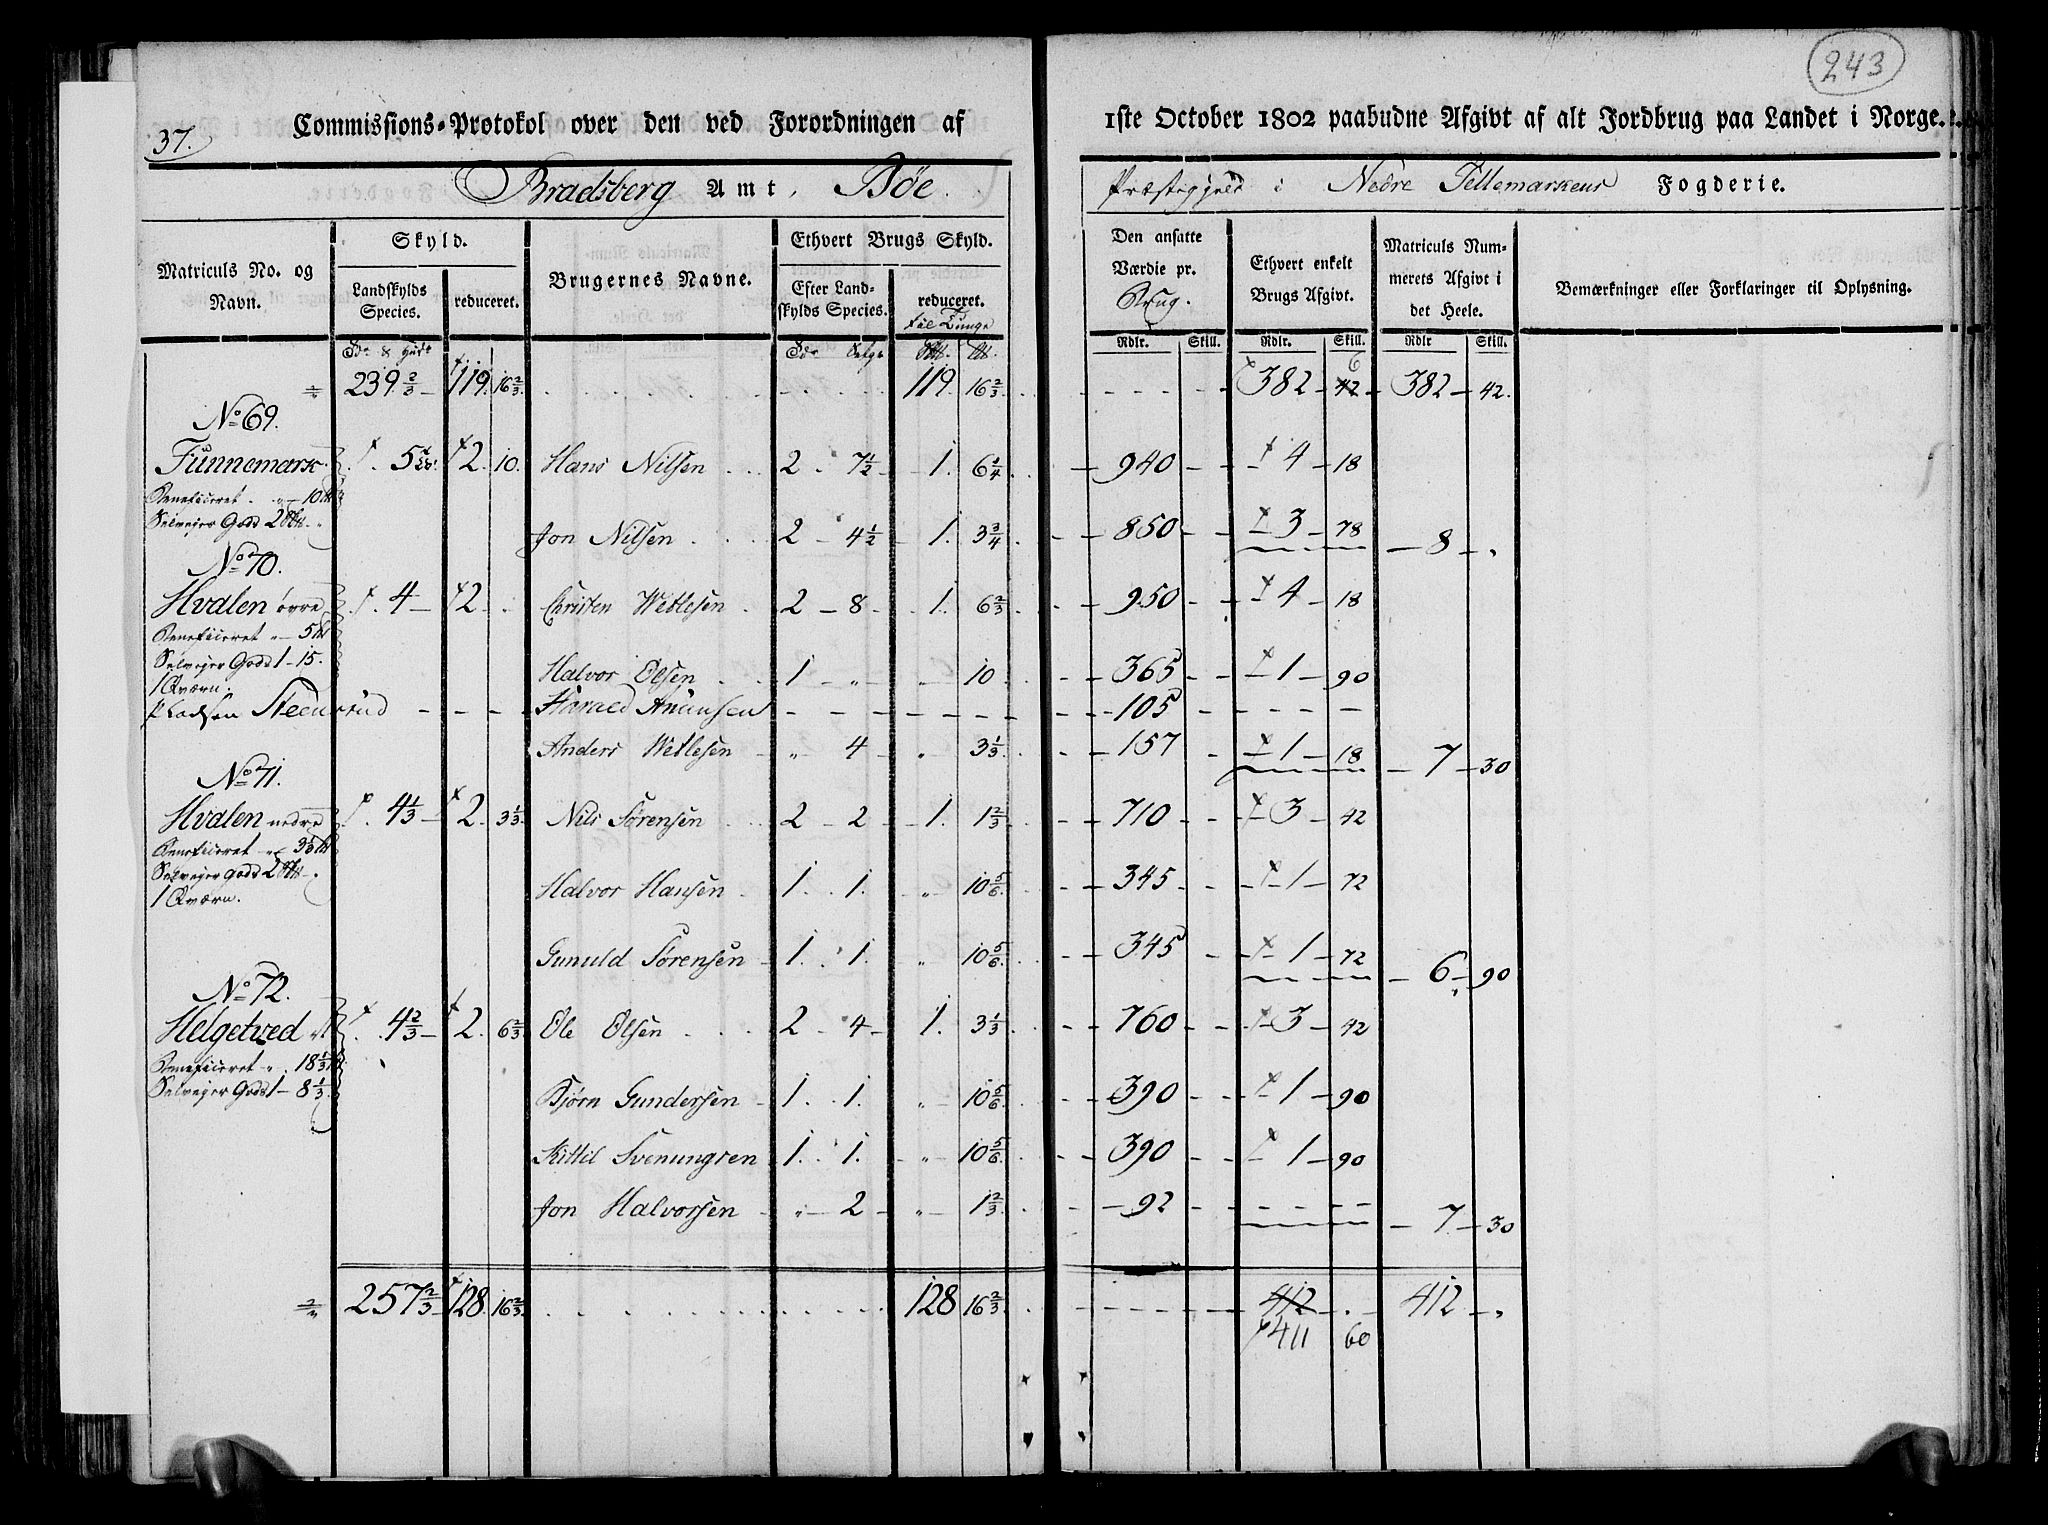 243
37.
Commissions-Protokol over den ved Forordningen af 1ste October 1802 paabudne Afgivt af alt Jordbrug paa Landet i Norge.
Bradsberg Amt, Bøe Præstegjeld i Nedre Tellemarkens Fogderie.
Matriculs No. og Navn. | Skyld. | Brugernes Navne. | Ethvert Brugs Skyld. | Den ansatte Værdie pr. Brug. | Ethvert enkelt Brugs Afgivt. | Matriculs Nummerets Afgivt i det Heele. | Bemærkninger eller Forklaringer til Oplysning.
Landskylds Species. | reduceret. | Efter Landskylds Species. | reduceret. til Tunge
Rdlr. | Skill. | Rdlr. | Skill. | Rdlr | Skill.
239 2/3 | 119. | 16 2/3 | 119. | 16 2/3 | 382 | 42 6 | 382 | 42.
No 69.
Funnemark | 2. | 10. | Hans Nilsen | 2 | 7 1/2 | 1. | 6 1/4 | 940 | 4 | 18
Beneficeret 10
Selvejer Gods 2 | Jon Nilsen | 2 | 4 1/2 | 1. | 3 3/4 | 850 | 3 | 78 | 8
No 70.
Hvalen øvre | 4 | 2 | Christen Wetlesen | 2 | 8 | 1. | 6 2/3 | 950 | 4 | 18
Beneficeret 5
Selvejer Gods 1 - 15. | Halvor Olsen | 1 | „ | 10 | 365 | 1 | 90
1 Qværn.
Pladsen Steenstud | Harald Anunsen | 105
Anders Wetlesen | „ | 4 | „ | 3 1/3 | 157 | 1 | 18 | 7 | 30
No 71.
Hvalen nedre | 4 1/3 | 2. | 3 1/3 | Nils Sørensen | 2 | 2 | 1. | 1 2/3 | 710 | 3 | 42
Beneficeret 3 1/3
Selvejer gods 2 | Halvor Hansen | 1. | 1. | „ | 10 5/6 | 345 | 1 | 72
1 Qværn.
Gunuld Sørensen | 1. | 1. | „ | 10 5/6 | 345 | 1 | 72 | 6 | 90
No 72.
Helgetved | 4 2/3 | 2. | 6 2/3 | Ole Olsen | 2 | 4 | 1. | 3 1/3 | 760 | 3 | 42
Beneficeret „ 18 1/3
Selvejer Gods 1 - 8 1/3 | Bjørn Gundersen | 1. | 1. | „ | 10 5/6 | 390 | 1 | 90
Kittil Svenungsen | 1. | 1. | „ | 10 5/6 | 390 | 1 | 90
Jon Halvorsen | „ | 2 | „ | 1 2/3 | 92 | 7 | 30
257 2/3 | 128. | 16 2/3 | 128 | 16 2/3 | 412 | 412
411 | 60